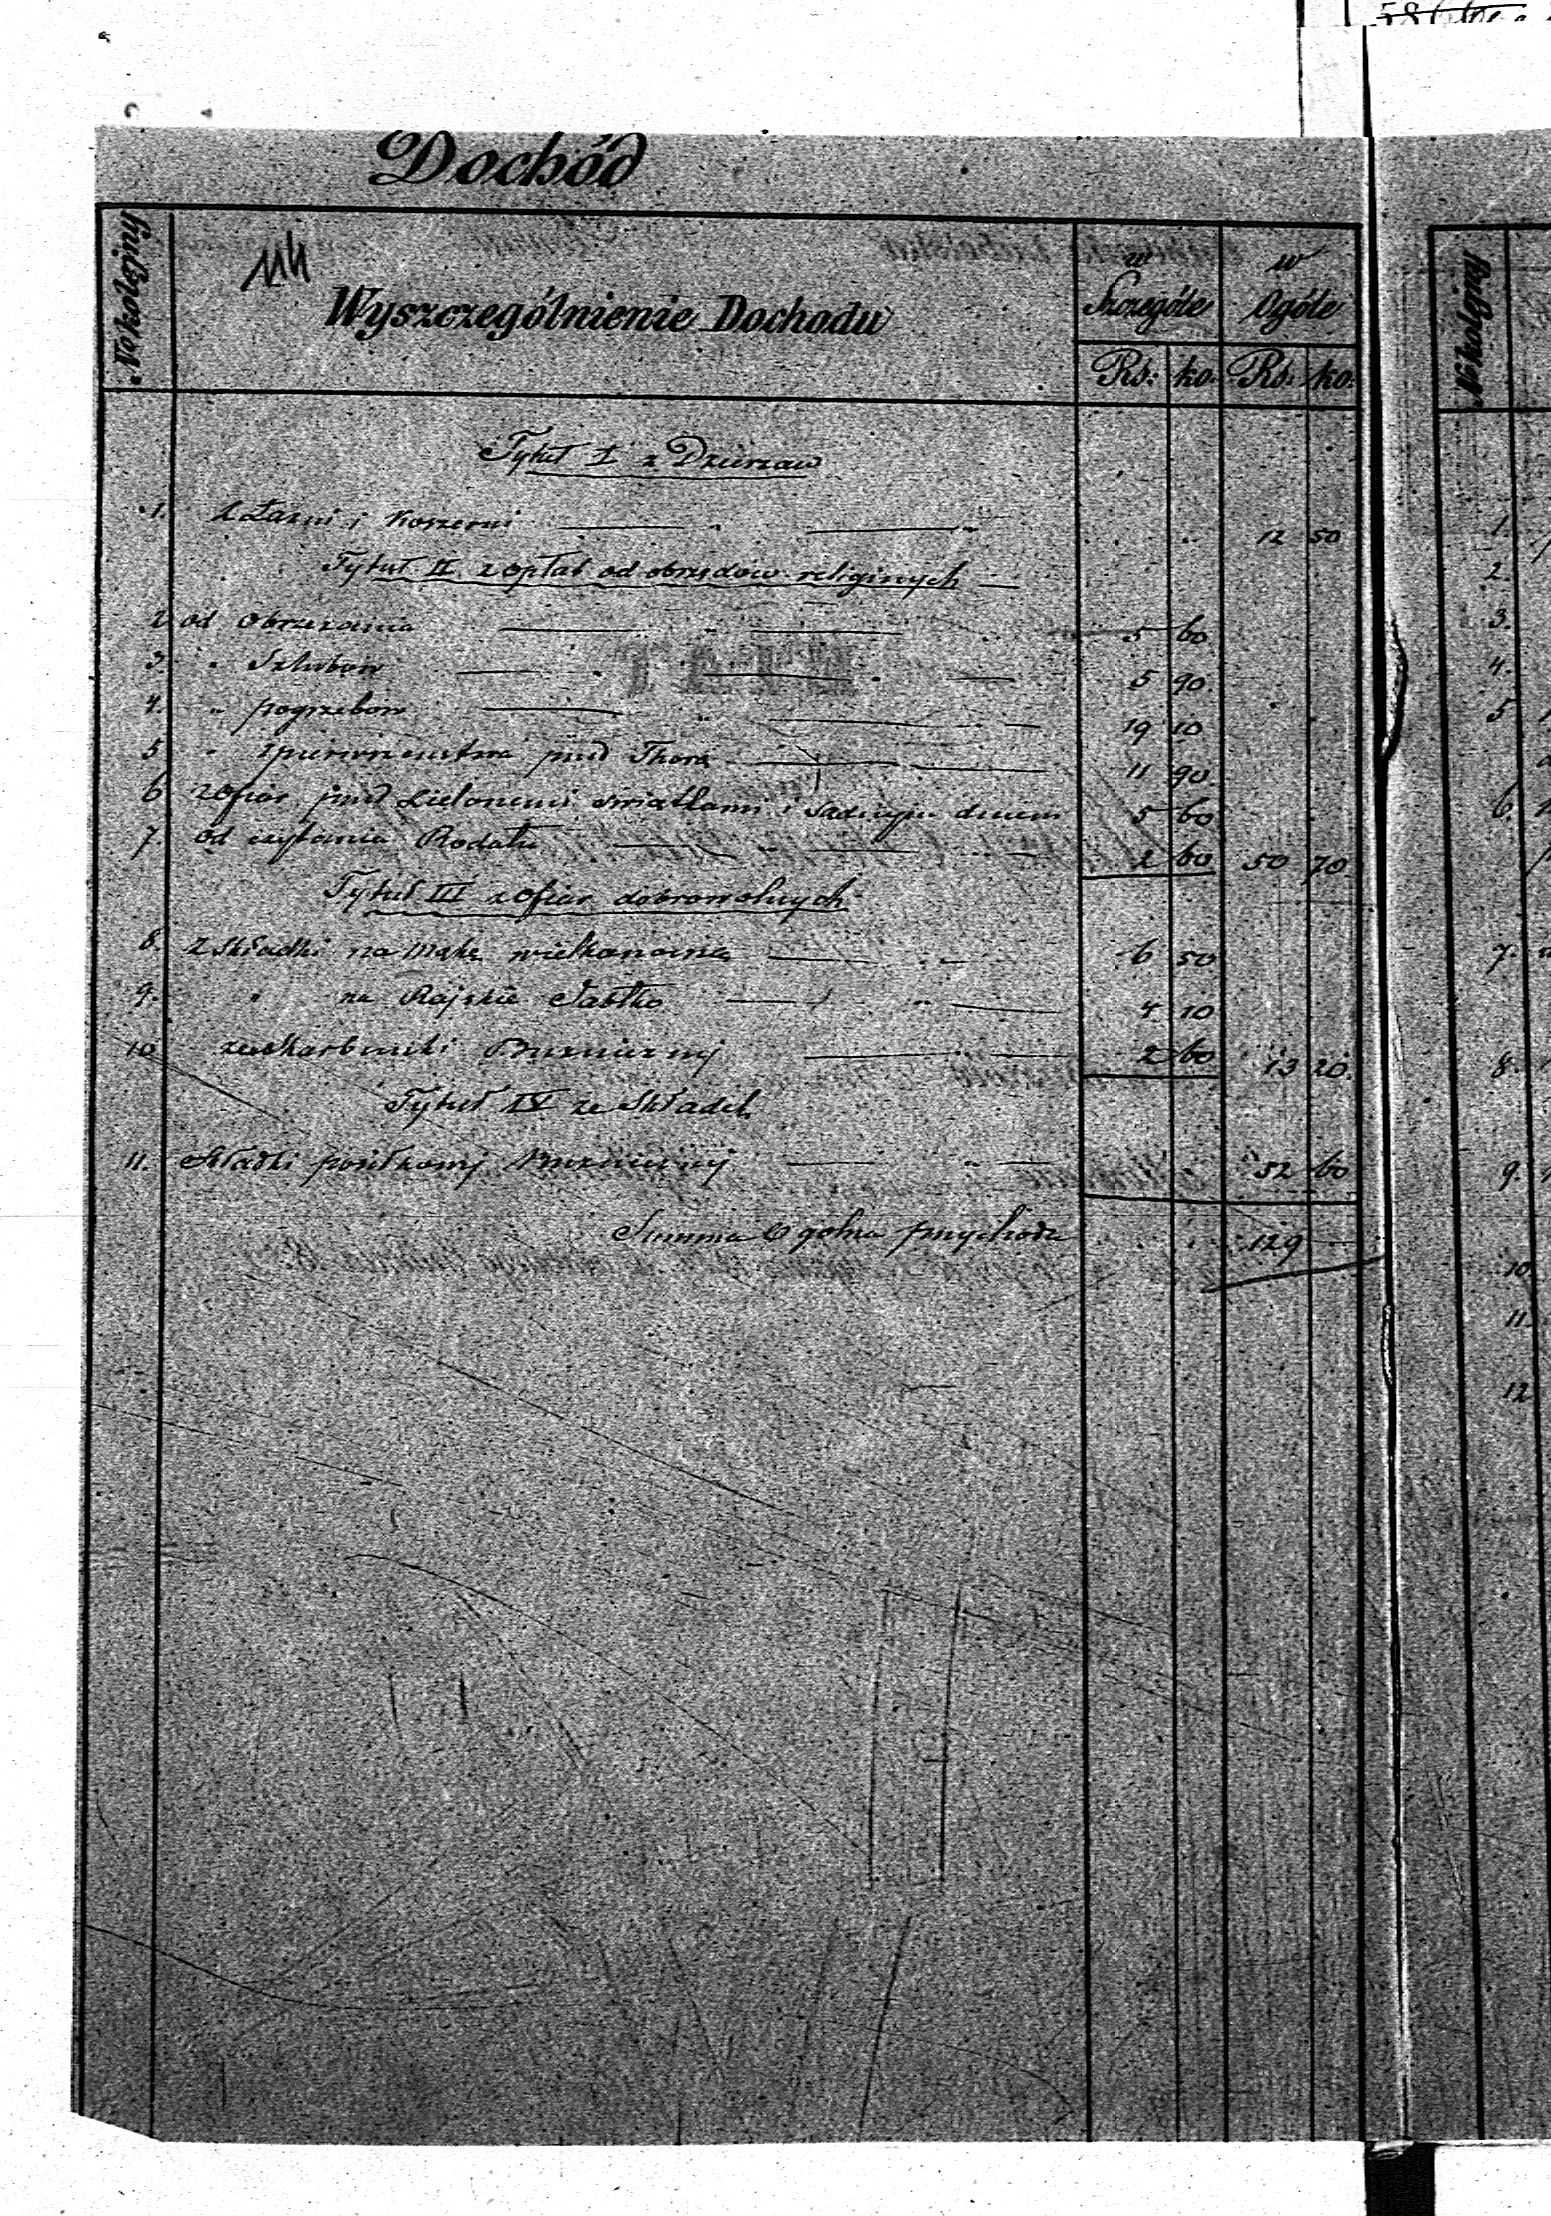 Dochód
No kolejny
114
Wyszczególnienie Dochodu
w Szczególe
w Ogóle
Rs: ko. Rs. ko.
Tytuł I z Dzierzaw
1. z Łazni i Koszerni 12 50
Tytuł II z opłat od obrzędow religinych
2 od Obrzezania 5 60
3. " Szlubow 5 90.
4. " pogrzebow 19 10
5 " zpierwszenstwa pred Thorą 11 90.
6 zofiar pred Zielonemi swiatkami i Sadnym dniem 5 60
7. od czytania Rodału 2 60 50 70
Tytuł III zofiar dobrowolnych
8. z składki na Mąkę wielkanocną 6 50
9. " na Rajskie Jabłko 4 10
10 ze skarbonki Buznicznej 2 60 13 20.
Tytuł IV ze Składek
11. Składki posiłkowej Buznicznej 52 60
Summa Ogolna przychodu 129
No kolejny
1.
2.
3.
4.
5
6.
7.
8.
9.
10
11.
12